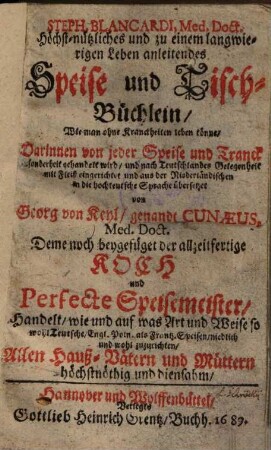 STEPH. BLANCARDI, Med. Doct.
Höchst-nützliches und zu einem langwie-
rigen Leben anleitendes
Speise und Tisch-
Büchlein/
Wie man ohne Kranckheiten leben könne/
Darinnen von jeder Speise und Tranck
insonderheit gehandelt wird/ und nach Teutschlandes Gelegenheit
mit Fleiß eingerichtet und aus der Niederländischen
in die hochteutsche Sprache übersetzet
von
Georg von Keyl/ genandt CUNÆUS,
Med. Doct.
Deme noch beygefüget der allzeitfertige
KOCH
und
Perfecte Speisemeister/
Handelt/ wie und auf was Art und Weise so
wohl Teutsche, Engl. Poln. als Frantz. Speisen/niedlich
und wohl zuzurichten/
Allen Hauß-Vätern und Müttern
höchstnöthig und diensahm/
Hannover und Wolffenbüttel/
Verlegts
Gottlieb Heinrich Grentz/ Buchh. 1689.